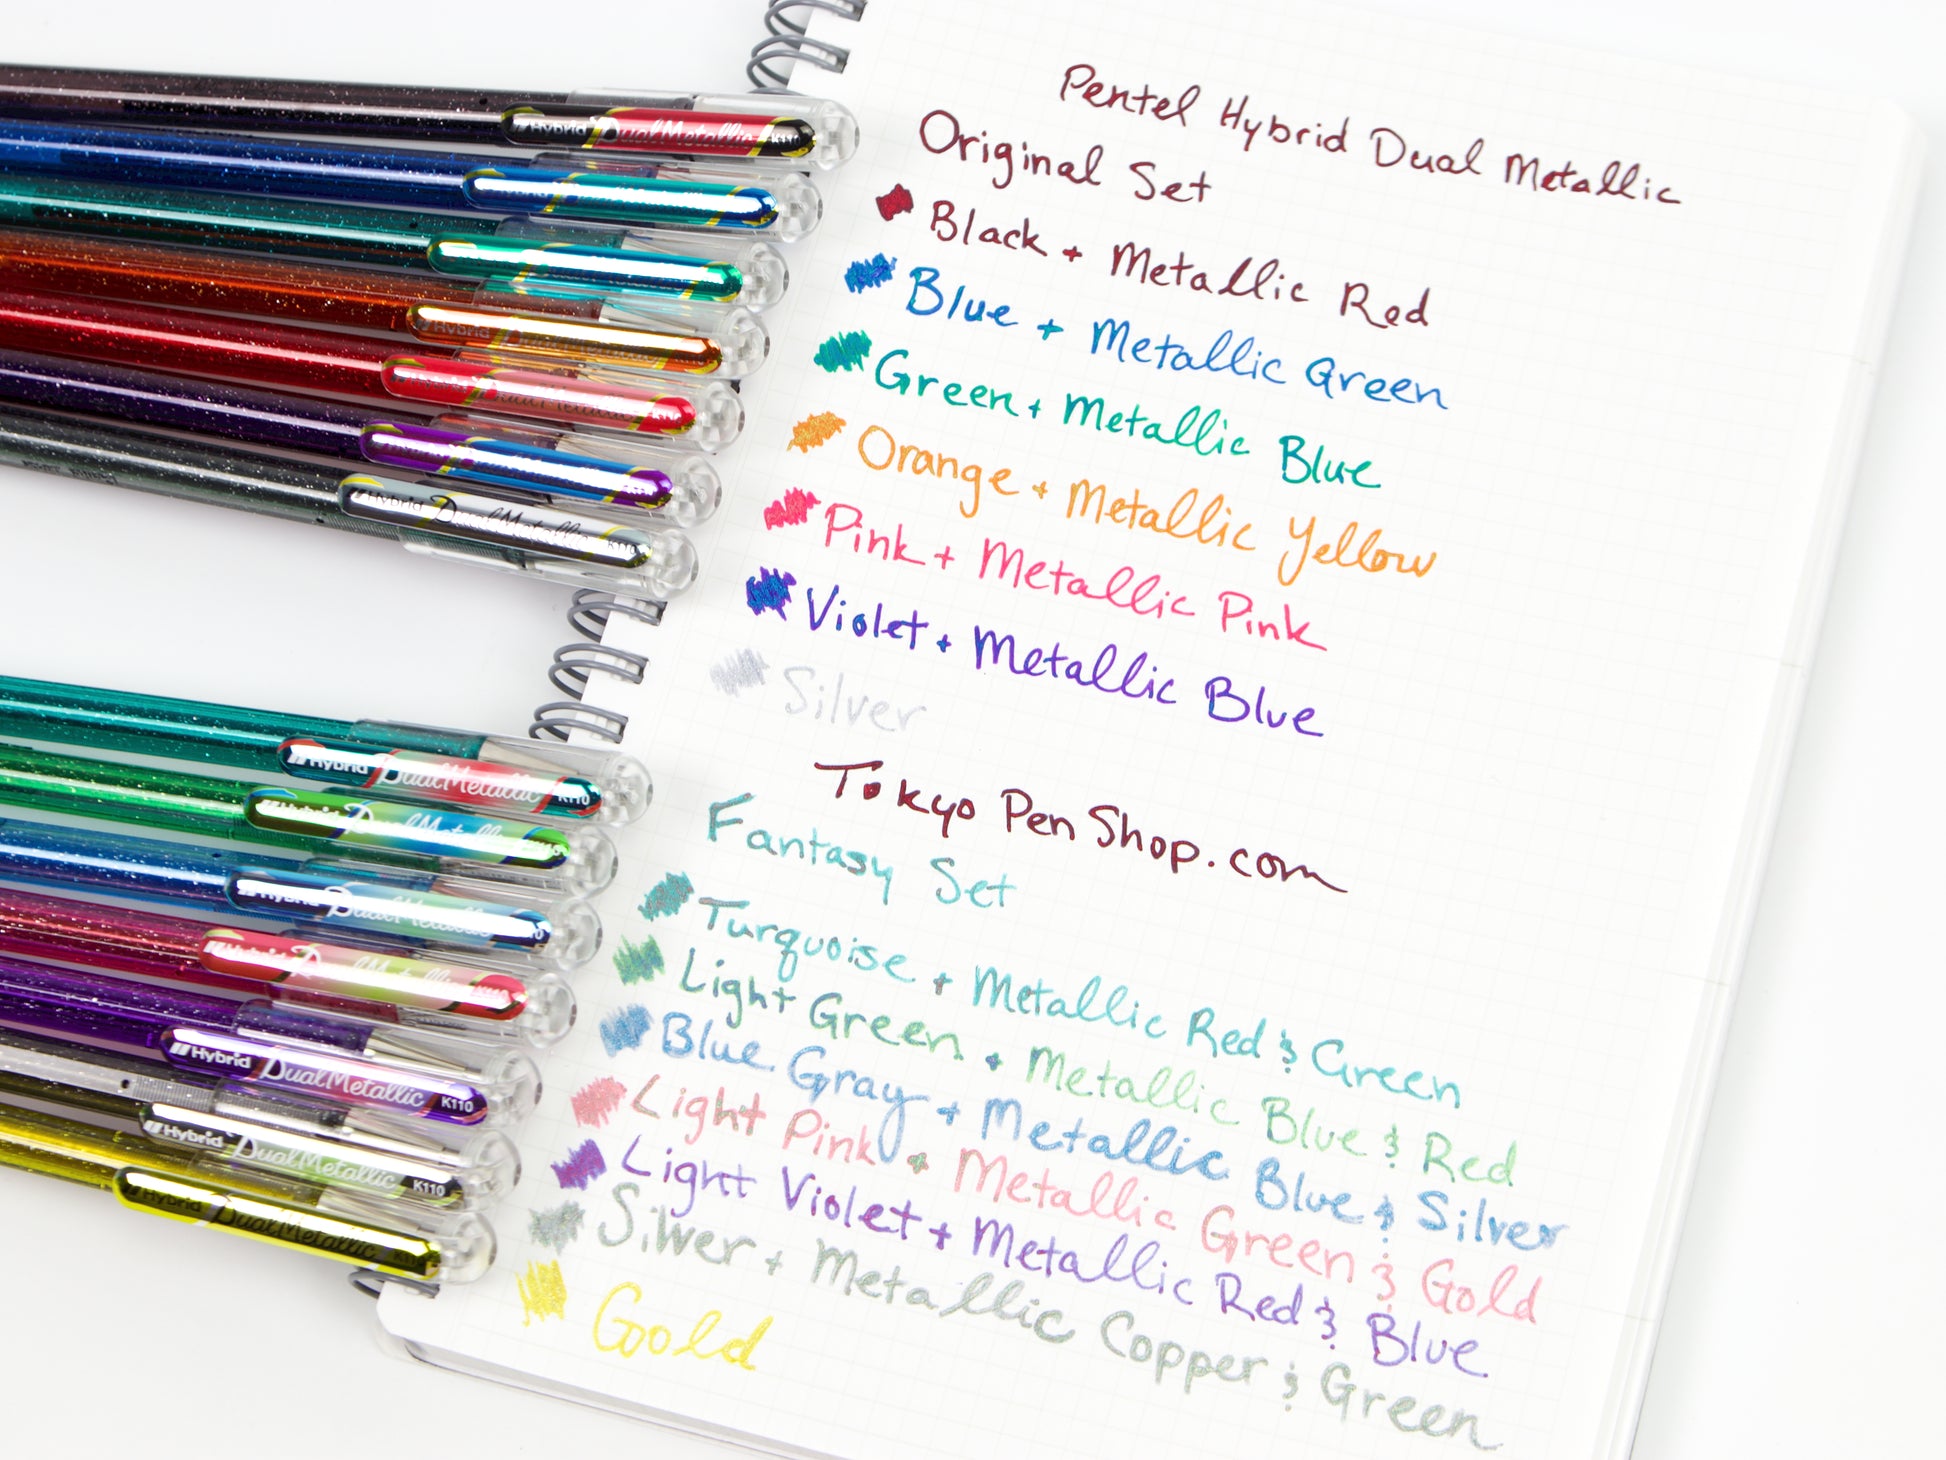 Pentel Hybrid Dual Metallic
Original Set
Black + Metallic Red
Blue + Metallic Green
Green + Metallic Blue
Orange + Metallic Yellow
Pink + Metallic Pink
Violet + Metallic Blue
Silver
Tokyo Pen Shop.com
Fantasy Set
Turquoise + Metallic Red & Green
Light Green + Metallic Blue & Red
Blue Gray + Metallic Blue & Silver
Light Pink + Metallic Green & Gold
Light Violet + Metallic Red & Blue
Silver + Metallic Copper & Green
Gold
Hybrid DualMetallic
Hybrid
DualMetallic
Hybrid DualMetallic
Hybrid DualMetallic K110
Hybrid DualMetallic
Hybrid DualMetallic
Hybrid DualMetallic
Hybrid DualMetallic K110
Hybrid DualMetallic K110
Hybrid DualMetallic